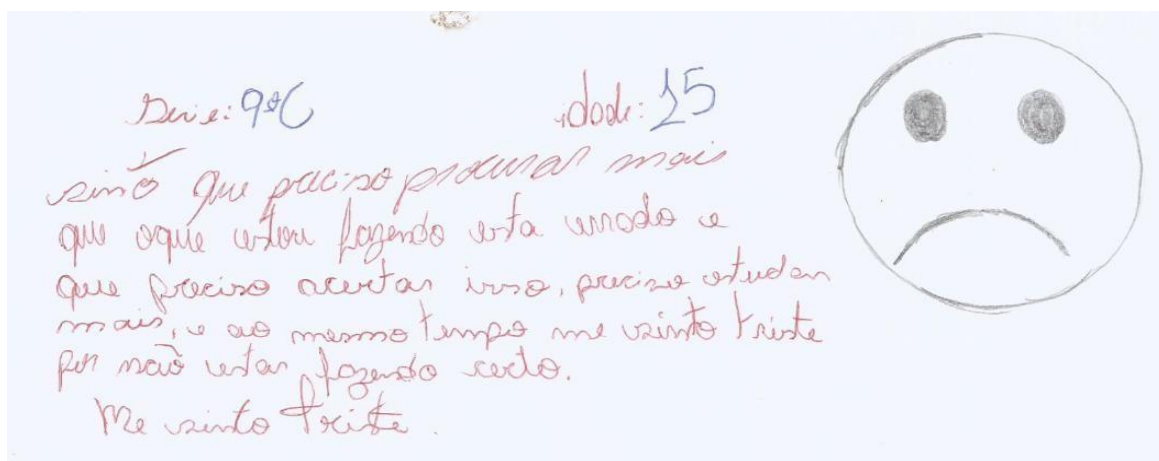 Serie: 9ºC idade: 15
sinto que preciso procurar mais
que oque estou fazendo esta errado e
que preciso acertar isso, preciso estudar
mais, e ao mesmo tempo me sinto triste
por não estar fazendo certo.
Me sinto triste.